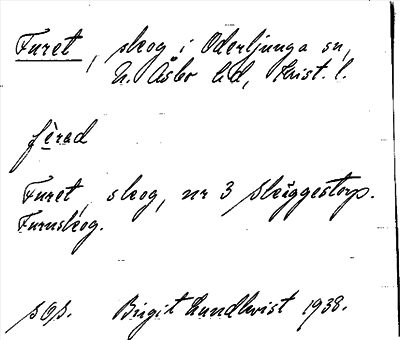 Furet, skog i Oderljunga sn,
N. Åsbo hd, Krist. l.
fèrad
Furet, skog, nr 3 Skäggestorp.
Furuskog.
sOp. Birgit Lundkvist 1938.